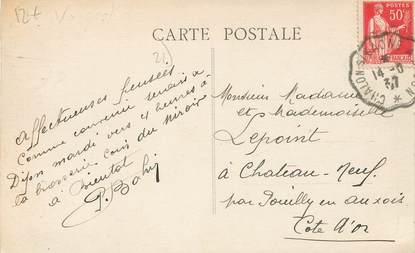 CARTE POSTALE
50c
CHALON-S
14 - 8
37
Affectueuses pensées
Comme convenu serais à
Dijon mardi vers 4 heures à
la brasserie coin du Miroir
à bientot
Monsieur Madame
et Mademoiselle
Lepoint
à Chateau-neuf
par Pouilly en auxois
Cote d'or